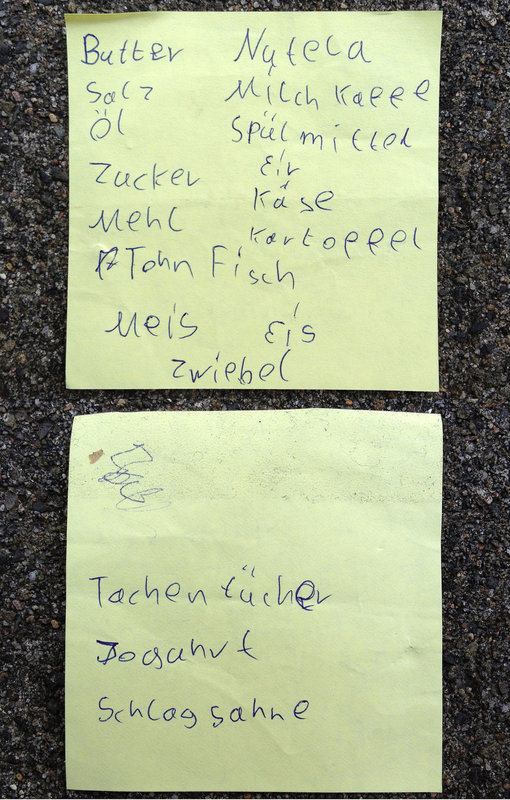 Butter Nutela
Salz Milch Kaffe
Öl Spülmittel
Zucker Eir
Mehl Käse
Kartoffel
Tohn Fisch
Meis Eis
Zwiebel
Tachentücher
Jogahrt
Schlagsahne